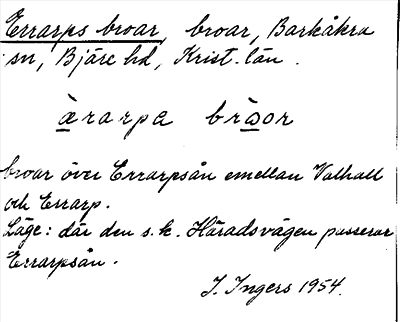 Errarps broar, broar, Barkåkra
sn, Bjäre hd, Krist. län.
ærarpa bråor
broar över Errarpsån emellan Valhall
och Errarp.
Läge: där den s.k. Häradsvägen passerar
Errarpsån.
I. Ingers 1954.